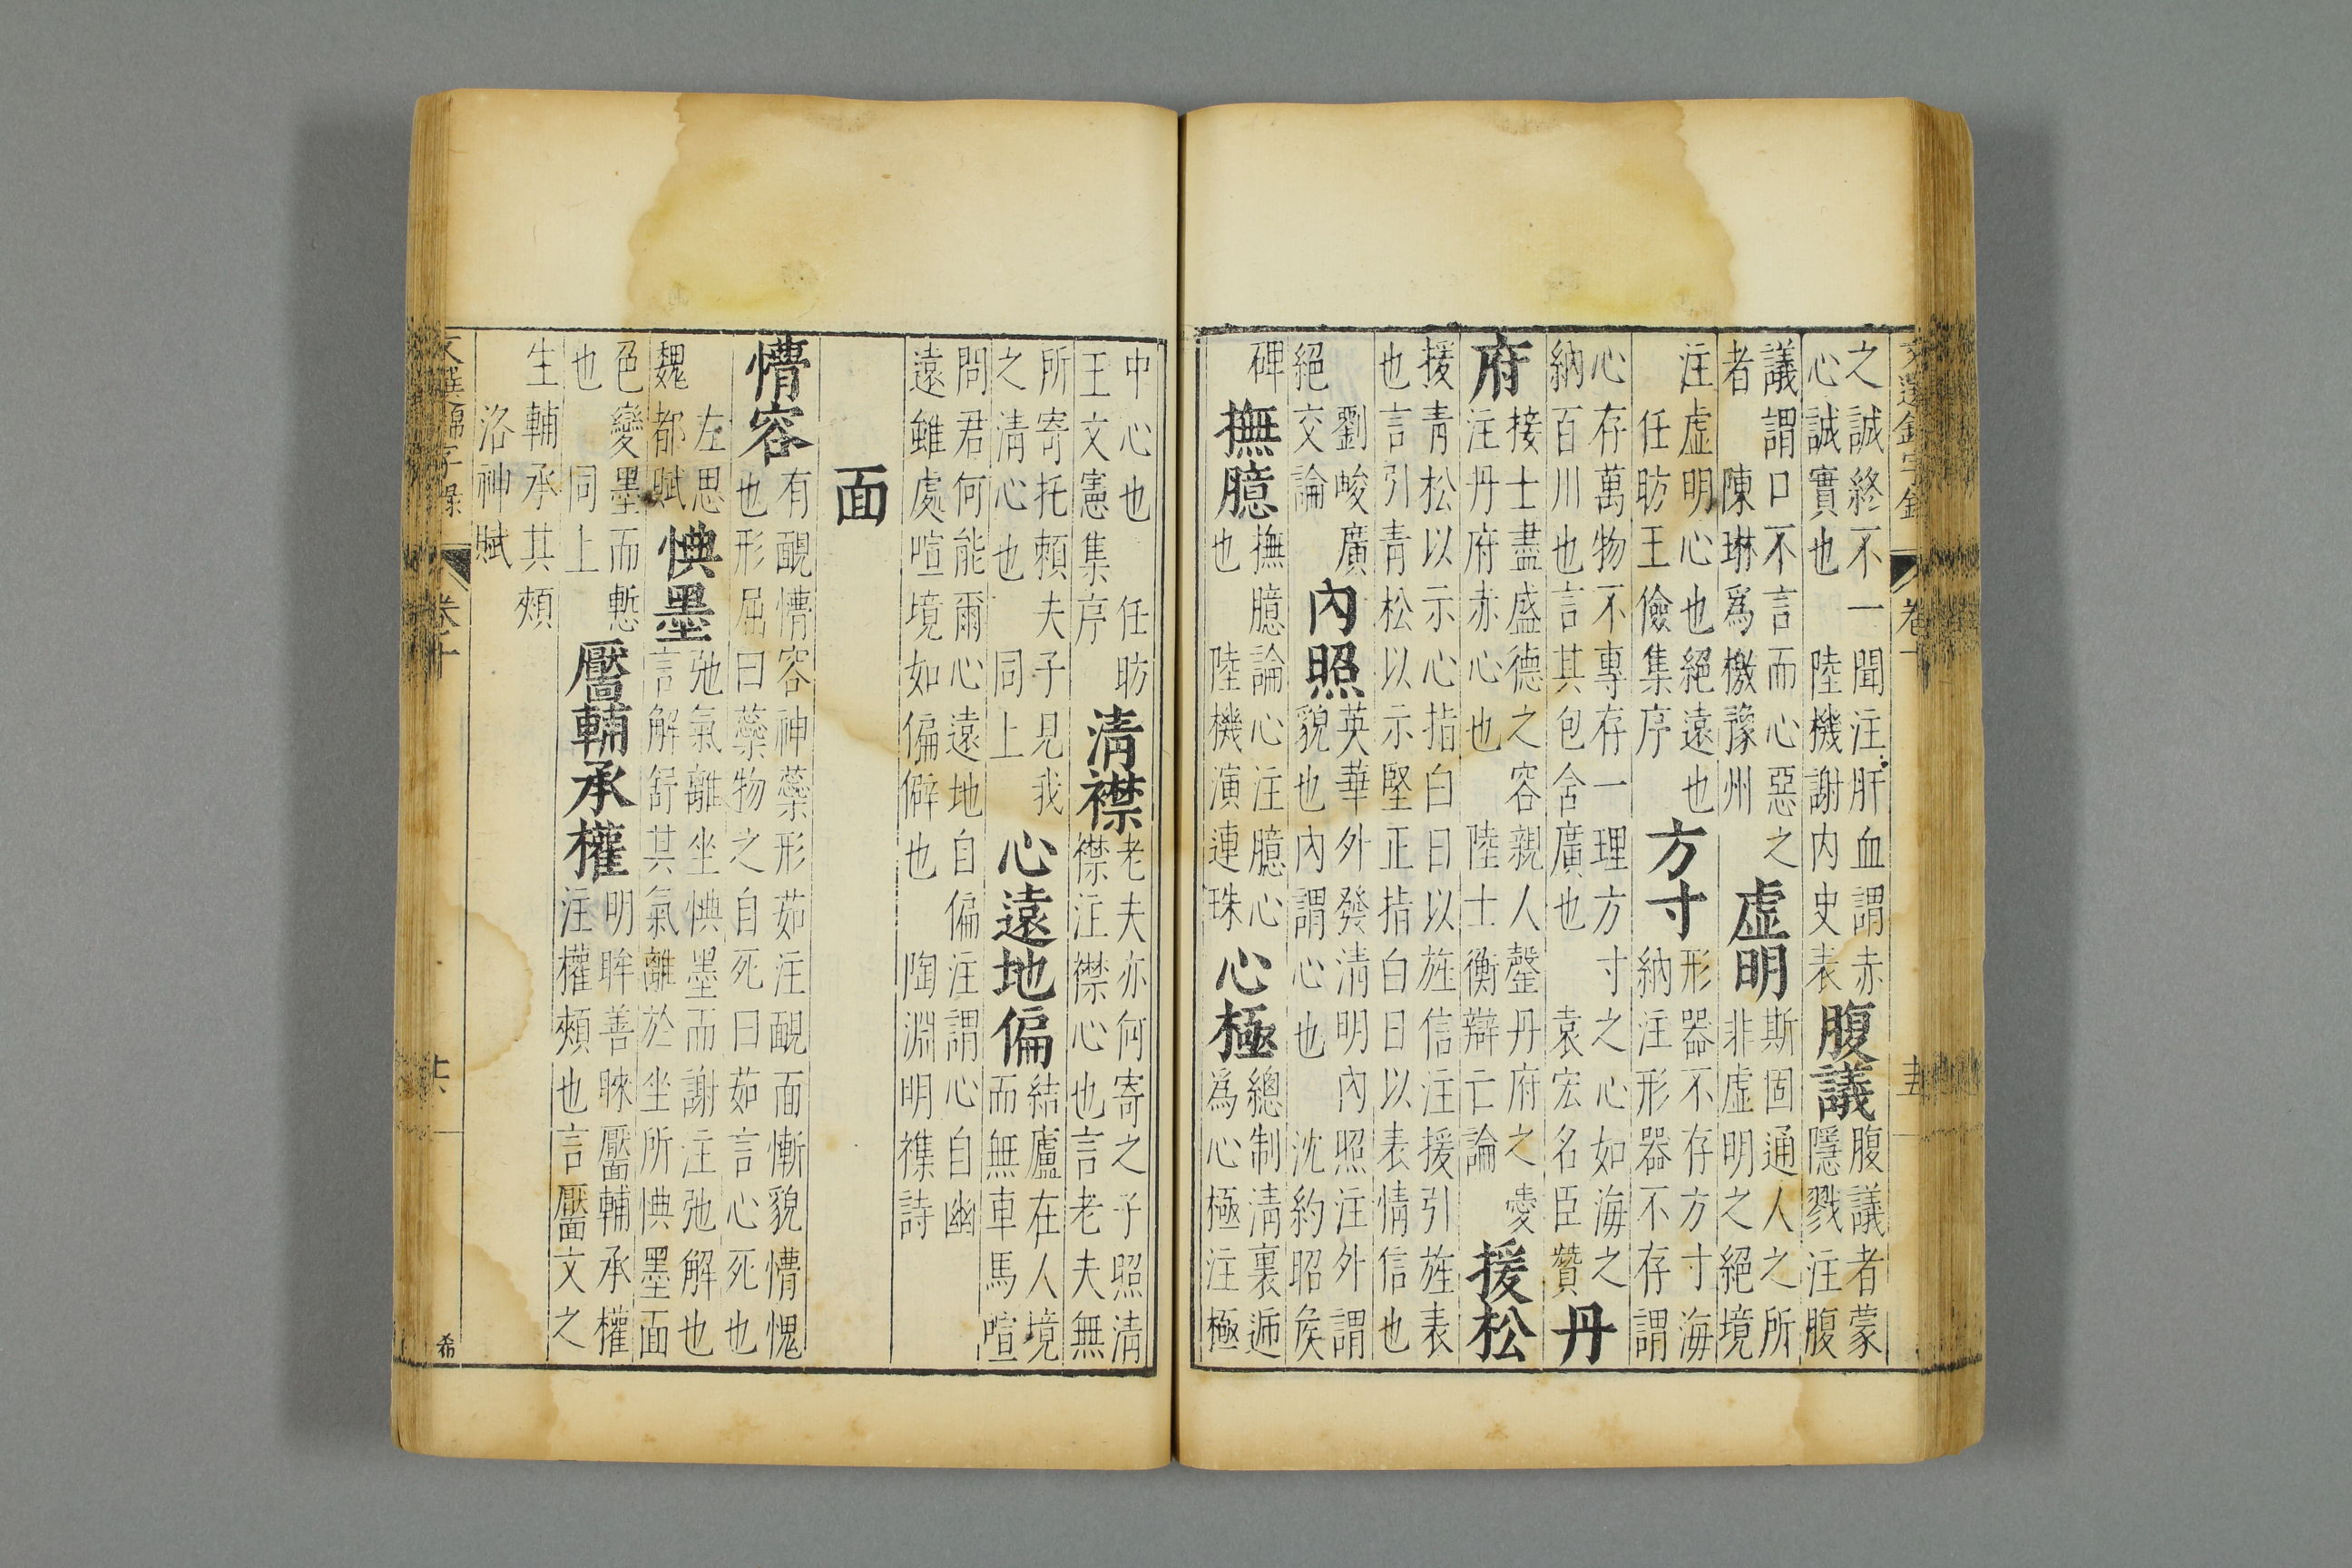 之誠終不一聞注肝血謂赤
心誠實也 陸機謝内史表
腹議
腹議者蒙
隱戮注腹
議謂口不言而心惡之
者 陳琳爲檄豫州
虛明
斯固通人之所
非虛明之絕境
注虛明心也絕遠也
任昉王儉集序
方寸
形器不存方寸海
納注形器不存謂
心存萬物不專存一理方寸之心如海之
納百川也言其包含廣也 袁宏名臣贊
丹
府
接士盡盛德之容親人罄丹府之愛
注丹府赤心也 陸士衡辯亡論
援松
援青松以示心指白日以旌信注援引旌表
也言引青松以示堅正指白日以表情信也
劉峻廣
絕交論
內照
英華外發清明內照注外謂
貌也內謂心也 沈約昭侯
碑
撫臆
撫臆論心注臆心
也 陸機演連珠
心極
總制清裏遞
爲心極注極
中心也 任昉
王文憲集序
清襟
老夫亦何寄之子照清
襟注襟心也言老夫無
所寄托賴夫子見我
之清心也 同上
心遠地偏
結廬在人境
而無車馬喧
問君何能爾心遠地自偏注謂心自幽
遠雖處喧境如偏僻也 陶淵明襍詩
面
懵容
有靦懵容神蘂形茹注靦面慚貌懵愧
也形屈曰蘂物之自死曰茹言心死也
左思
魏都賦
㥏墨
㢮氣離坐㥏墨而謝注㢮解也
言解舒其氣離於坐所㥏墨面
色變墨而慙
也 同上
靨輔承權
明眸善睞靨輔承權
注權頰也言靨文之
生輔承其頰
洛神賦
文選錦字錄 卷十 十六 希